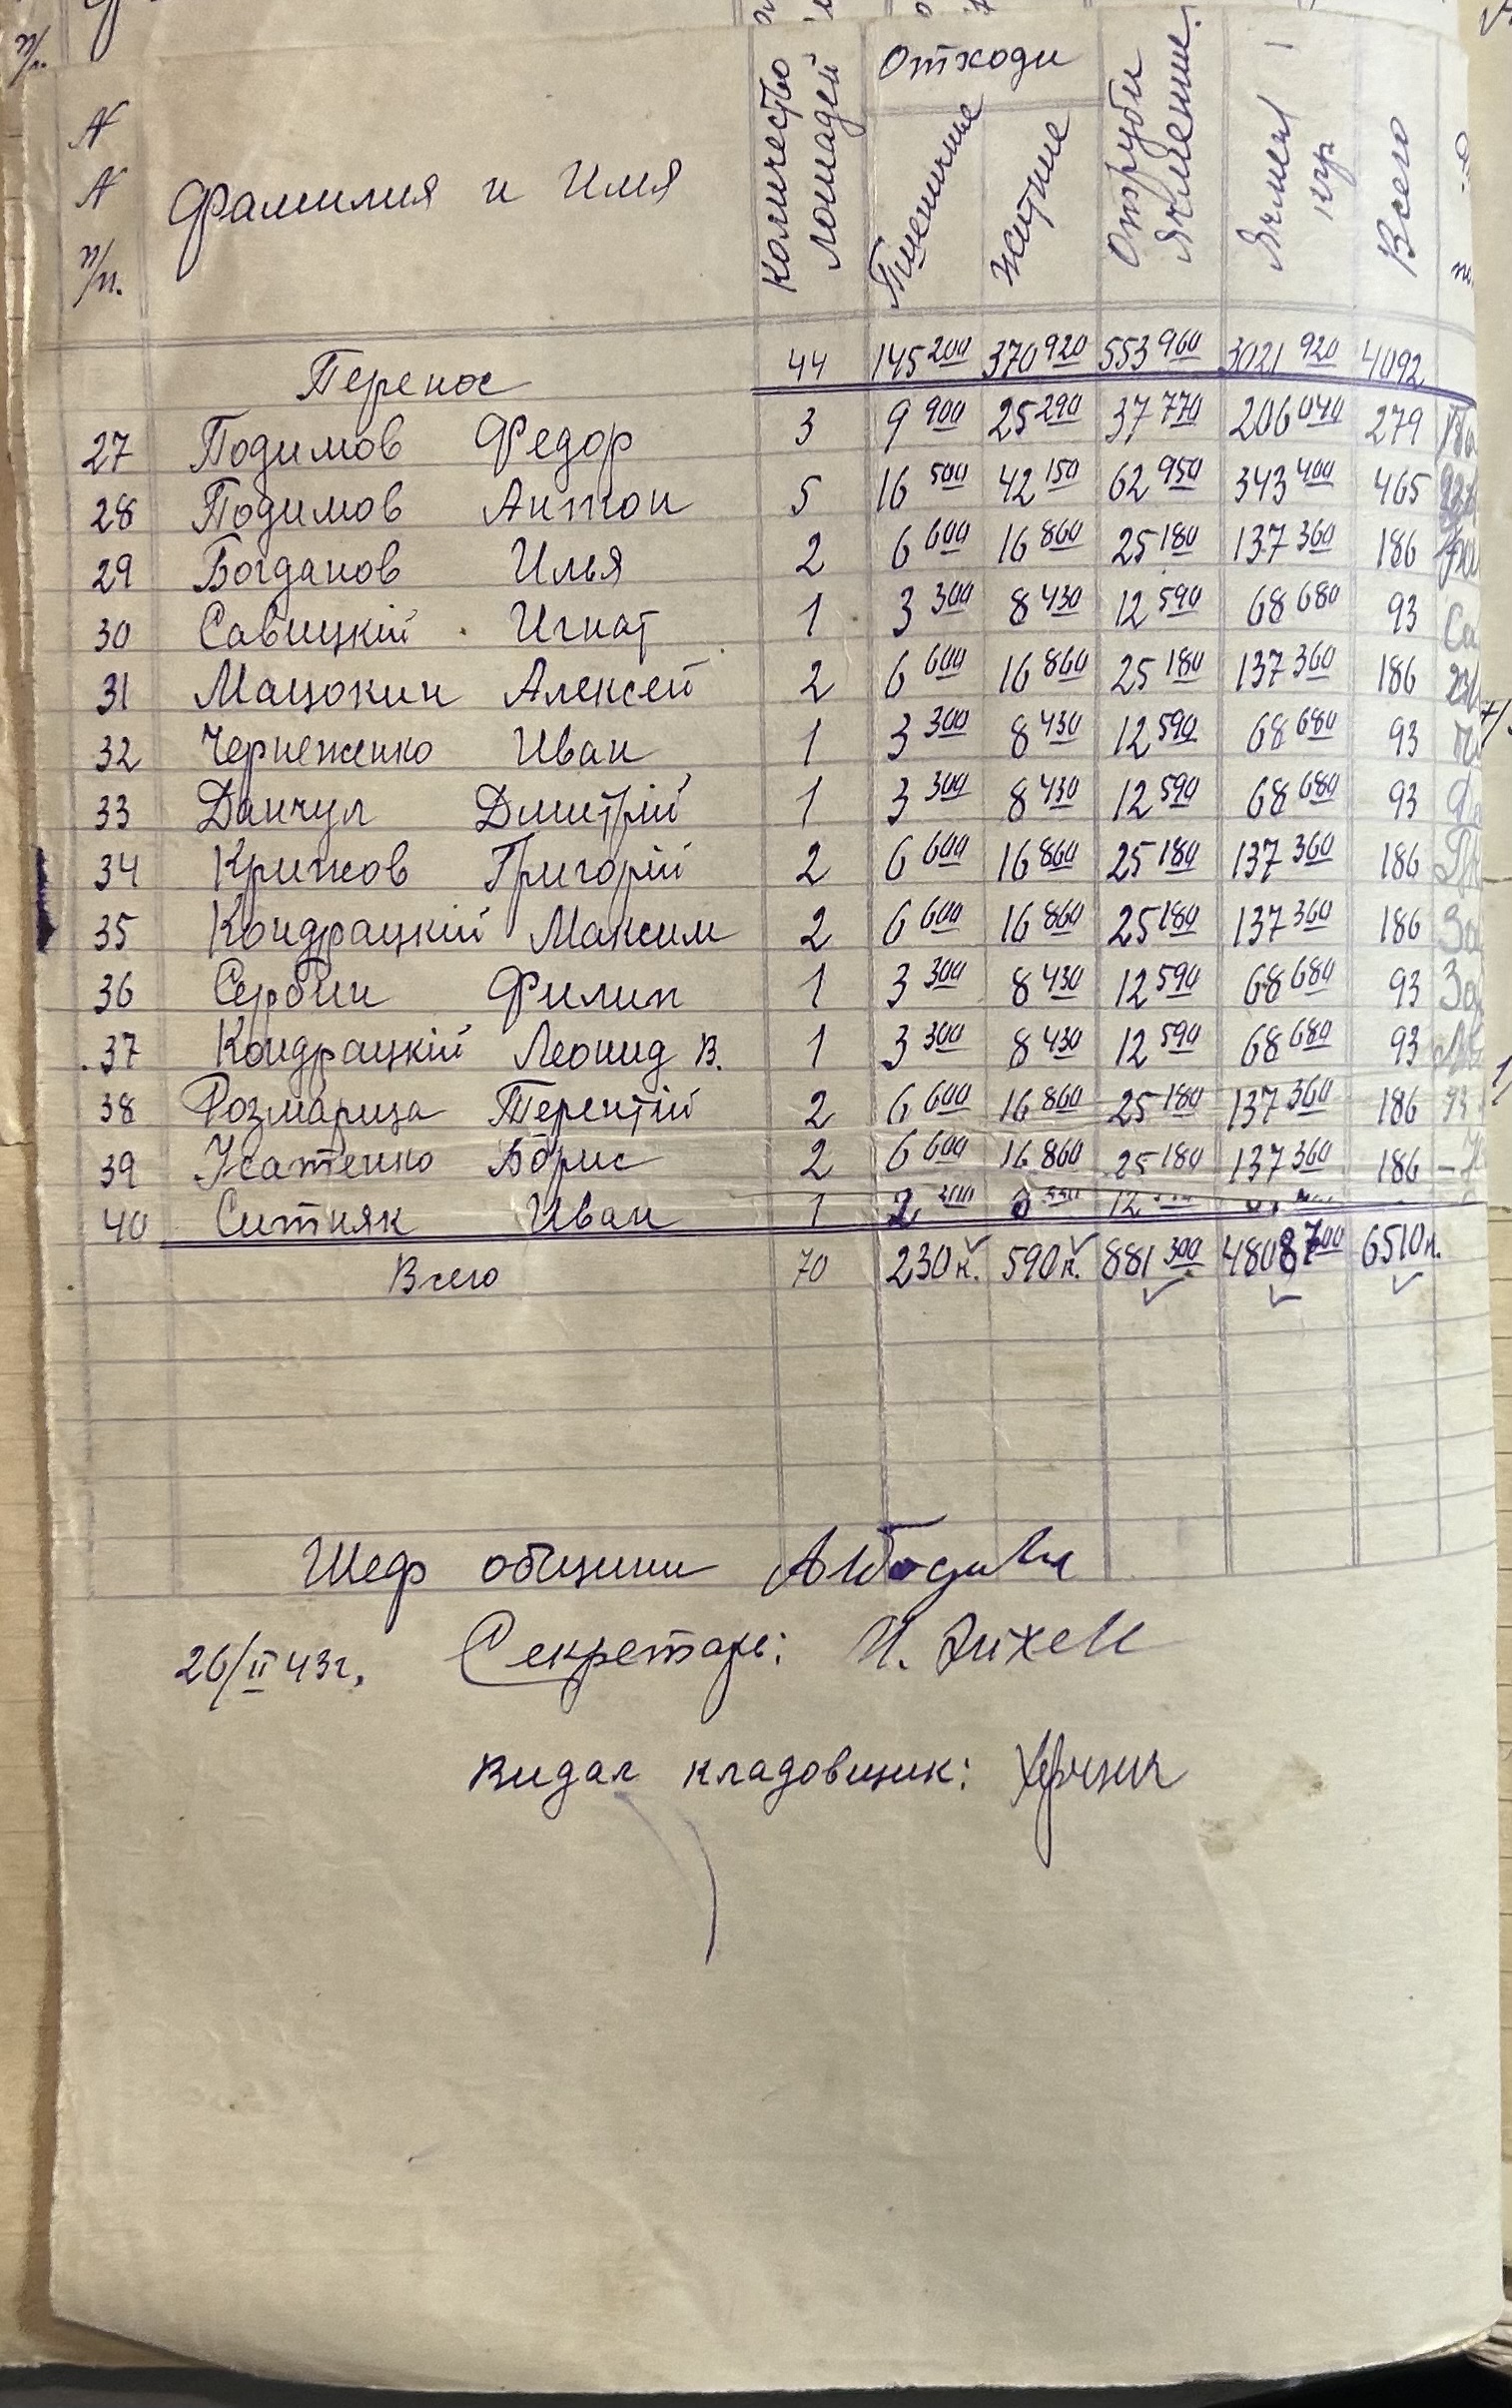 N N п/п. Фамилия и Имя Количество лошадей Отходи Пшеничние Житние Отруби Ячменние. Ячмень кур Всего
Перенос 44 145 200 370 920 553 960 3021 920 4092
27 Подимов Федор 3 9 900 25 290 37 770 206 040 279
28 Подимов Антон 5 16 500 42 150 62 950 343 400 465
29 Богданов Илья 2 6 600 16 860 25 180 137 360 186
30 Савицкій Игнат 1 3 300 8 430 12 590 68 680 93
31 Мацокин Алексей 2 6 600 16 860 25 180 137 360 186
32 Черненженко Иван 1 3 300 8 430 12 590 68 680 93
33 Данчул Дмитрій 1 3 300 8 430 12 590 68 680 93
34 Крижов Григорій 2 6 600 16 860 25 180 137 360 186
35 Кондрацкій Максим 2 6 600 16 860 25 180 137 360 186
36 Сербин Филип 1 3 300 8 430 12 590 68 680 93
37 Кондрацкій Леонид В. 1 3 300 8 430 12 590 68 680 93
38 Розмарица Терентій 2 6 600 16 860 25 180 137 360 186
39 Усатенко Борис 2 6 600 16 860 25 180 137 360 186
40 Ситняк Иван 1
Всего 70 230 к. 590 к. 881 300 4808 700 6510 к.
Шеф общини
26/II 43 г. Секретарь:
Видал кладовщик: